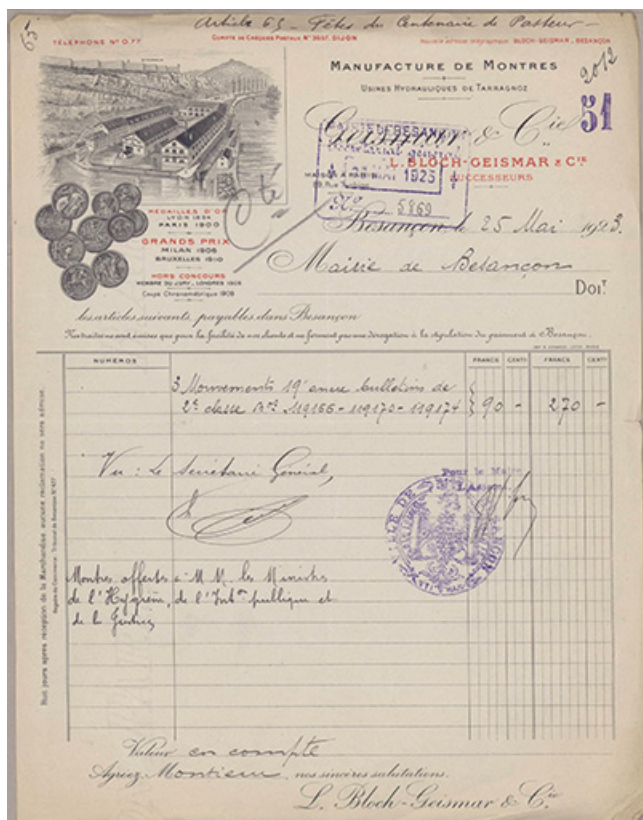 65
Article 65 - Fêtes du Centenaire de Pasteur -
TÉLÉPHONE Nº 0.77
COMPTE DE CHÈQUES POSTAUX Nº 3697. DIJON
BLOCH-GEISMAR, BESANÇON
MANUFACTURE DE MONTRES
2012
USINES HYDRAULIQUES DE TARRAGNOZ
51
Geismar & Cie
MAIRIE DE BESANÇON
L. BLOCH-GEISMAR & Cie
SUCCESSEURS
1923
Nº 5869
MÉDAILLES D'OR
LYON 1894
PARIS 1900
GRANDS PRIX
MILAN 1906
BRUXELLES 1910
HORS CONCOURS
MEMBRE DU JURY, LONDRES 1908
Coupe Chronométrique 1908
Besançon le 25 Mai 1923.
Mairie de Besançon
Doit
les articles suivants, payables dans Besançon
Nos traites ne sont émises que pour la facilité de nos clients et ne forment pas une dérogation à la stipulation du paiement à Besançon.
NUMÉROS FRANCS CENT FRANCS CENT
3 Mouvements 19 avec bulletins de
2e classe Nos 119166 - 119170 - 119174 90 - 270 -
Vu : Le Secrétaire Général,
Pour le Maire
VILLE DE BESANÇON
Montres offertes à M.M. les Ministres
de l'Hygiène, de l'Inton publique et
de la Justice
Huit jours après réception de la Marchandise aucune réclamation ne sera admise.
Registre du Commerce : Tribunal de Besançon Nº 407
Valeur en compte
Agréez, Monsieur, nos sincères salutations.
L. Bloch-Geismar & Cie